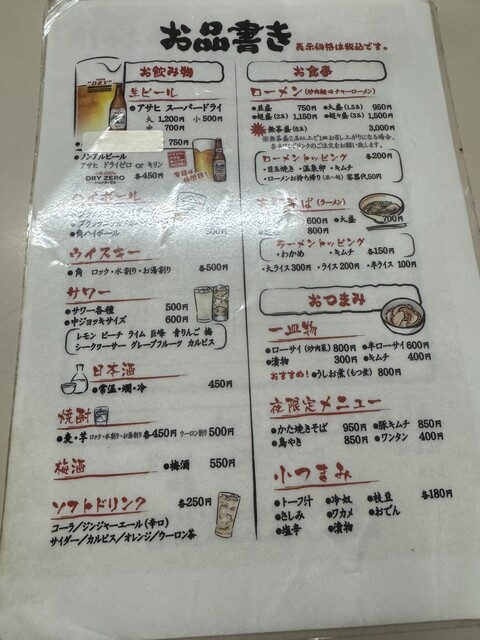 お品書き
表示価格は税込です。
お飲み物
生ビール
●アサヒ スーパードライ
大 1,200円 小 500円
中 700円
750円
●ノンアルビール
アサヒ ドライゼロ or キリン
各450円
DRY ZERO
ハイボール
●角ハイボール 500円
ウイスキー
●角 ロック・水割り・お湯割り 各500円
サワー
●サワー各種 500円
●中ジョッキサイズ 600円
レモン ピーチ ライム 巨峰 青りんご 梅
シークワーサー グレープフルーツ カルピス
日本酒
●常温・燗・冷 450円
焼酎
●麦・芋 ロック・水割り・お湯割り 各450円 ウーロン割り 500円
梅酒 ●梅酒 550円
ソフトドリンク 各250円
コーラ/ジンジャーエール(辛口)
サイダー/カルピス/オレンジ/ウーロン茶
お食事
ローメン(炒肉麺⇒チャーローメン)
●並盛 750円 ●大盛(1.5玉) 950円
●超盛(2玉) 1,150円 ●超々盛(2.5玉) 1,500円
●無茶盛(6玉) 3,000円
ローメントッピング 各200円
・目玉焼き・温泉卵・キムチ
・ローメンお持ち帰り 容器代50円
そば(ラーメン)
600円 ●大盛 700円
800円
ラーメントッピング
・わかめ ・キムチ 各150円
・大ライス 300円・ライス 200円・半ライス 100円
おつまみ
一皿物
●ローサイ(炒肉菜) 800円 ●半ローサイ 600円
●漬物 300円 ●キムチ 400円
おすすめ!●うしお煮(もつ煮) 800円
夜限定メニュー
●かた焼きそば 950円 ●豚キムチ 850円
●鳥やき 850円 ●ワンタン 400円
小つまみ
●トーフ汁 ●冷奴 ●枝豆 各180円
●さしみ ●ワカメ ●おでん
●塩辛 ●漬物